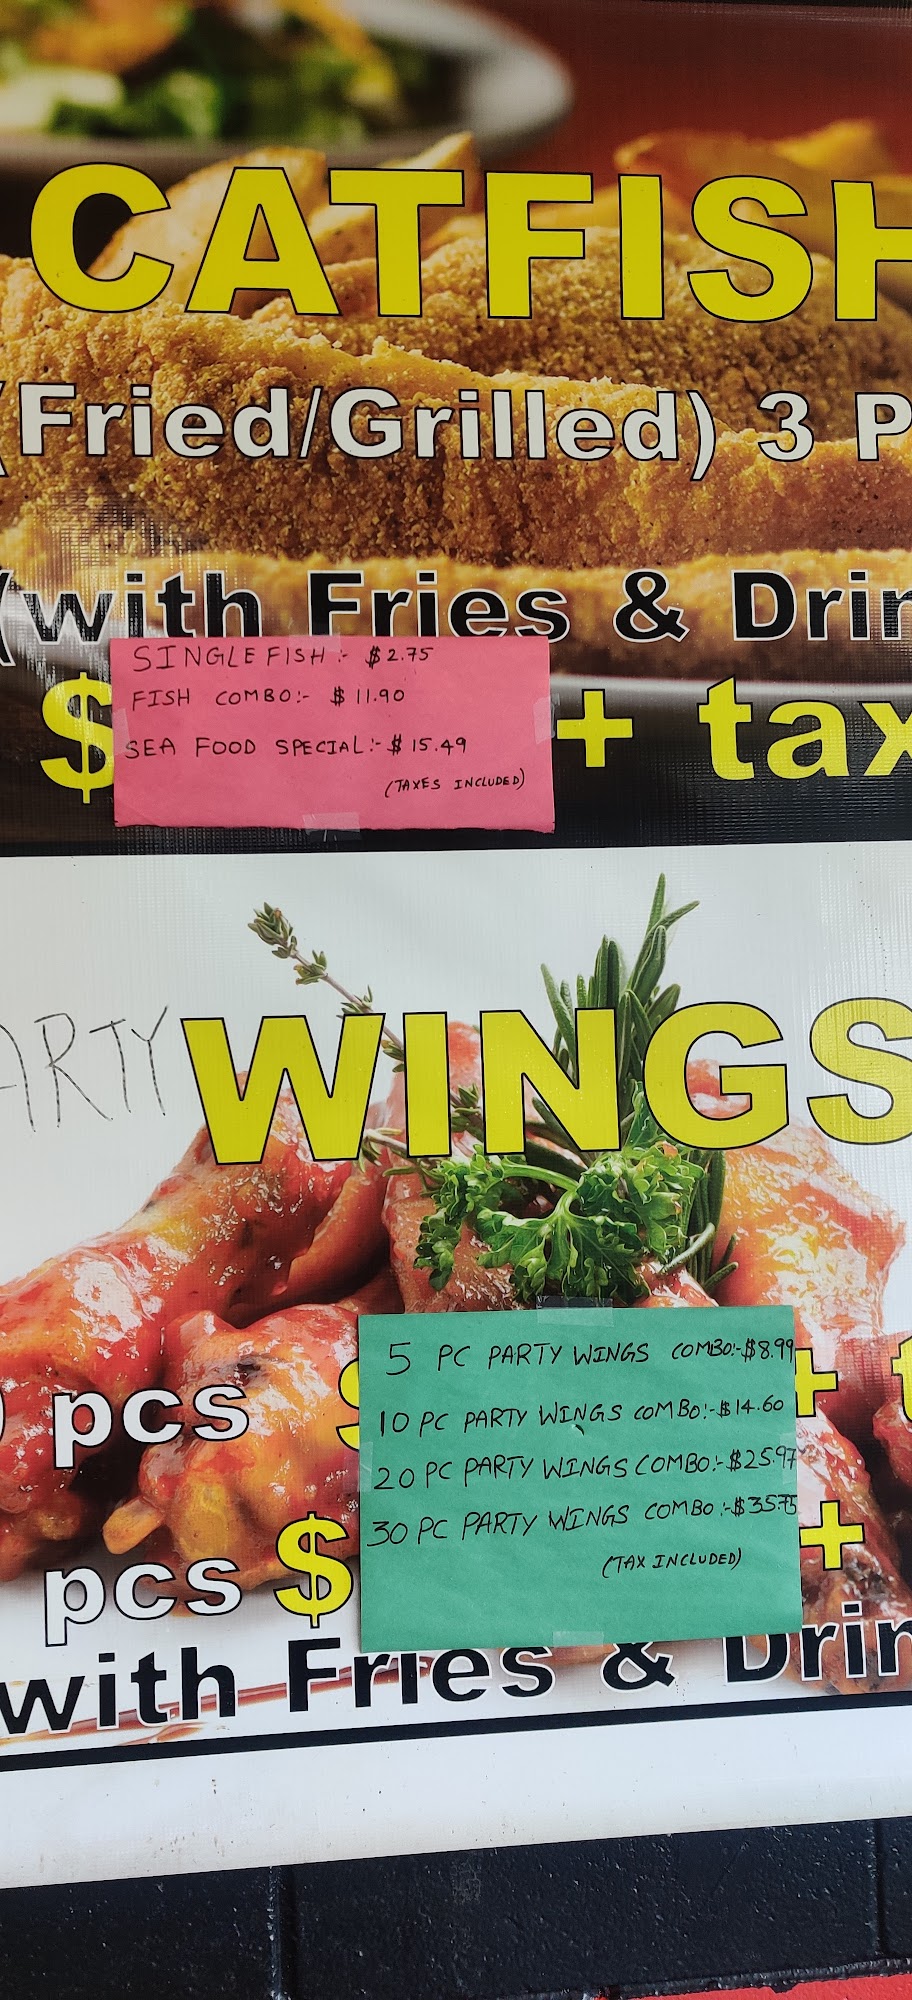 CATFISH
(Fried/Grilled) 3 P
(with Fries & Drin
SINGLE FISH :- $2.75
FISH COMBO:- $11.90
SEA FOOD SPECIAL:- $15.49
(TAXES INCLUDED)
$ + tax
ARTY WINGS
5 PC PARTY WINGS COMBO:-$8.99
10 PC PARTY WINGS COMBO:-$14.60
20 PC PARTY WINGS COMBO:-$25.97
30 PC PARTY WINGS COMBO:-$35.75
(TAX INCLUDED)
pcs $ + t
pcs $ +
with Fries & Drin